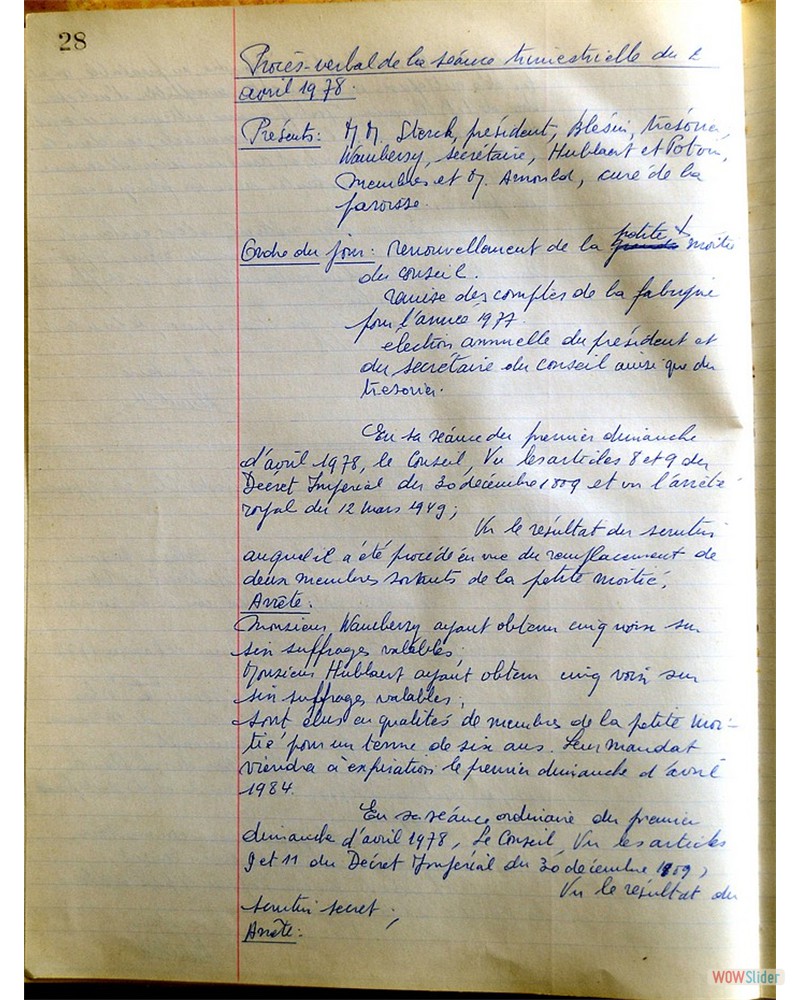 28
Procès-verbal de la séance trimestrielle du 2
avril 1978.
Présents: M.M. Sterck, président, Blésin, trésorier,
Wamberzy, secrétaire, Hublaert et Potvin,
membres et M. Arnould, curé de la
paroisse.
Ordre du jour: renouvellement de la petite moitié
du conseil.
remise des comptes de la fabrique
pour l'année 1977.
élection annuelle du président et
du secrétaire du conseil ainsi que du
trésorier.
En sa séance du premier dimanche
d'avril 1978, le Conseil, Vu les articles 8 et 9 du
Décret Impérial du 30 décembre 1809 et vu l'arrêté
royal du 12 mars 1949;
Vu le résultat du scrutin
auquel il a été procédé en vue du remplacement de
deux membres sortants de la petite moitié,
Arrête:
Monsieur Wamberzy ayant obtenu cinq voix sur
six suffrages valables;
Monsieur Hublaert ayant obtenu cinq voix sur
six suffrages valables;
sont élus en qualités de membres de la petite moi-
tié pour un terme de six ans. Leur mandat
viendra à expiration le premier dimanche d'avril
1984.
En sa séance ordinaire du premier
dimanche d'avril 1978, Le Conseil, Vu les articles
9 et 11 du Décret Impérial du 30 décembre 1809,
Vu le résultat du
scrutin secret;
Arrête:
WOWSlider